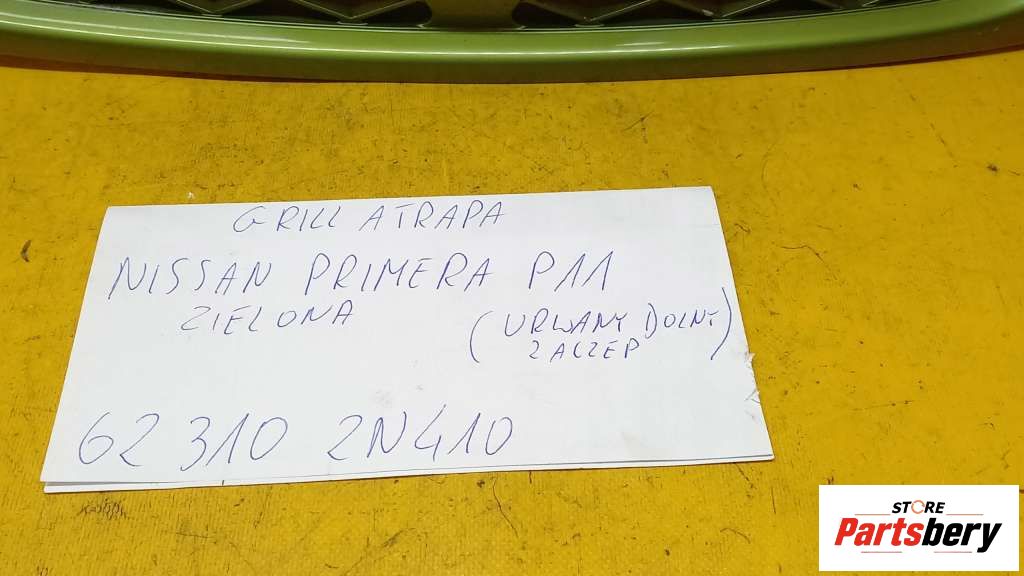 GRILL ATRAPA
NISSAN PRIMERA P11
ZIELONA
(URWANY DOLNY
ZACZEP)
62 310 2N410
STORE
Partsbery